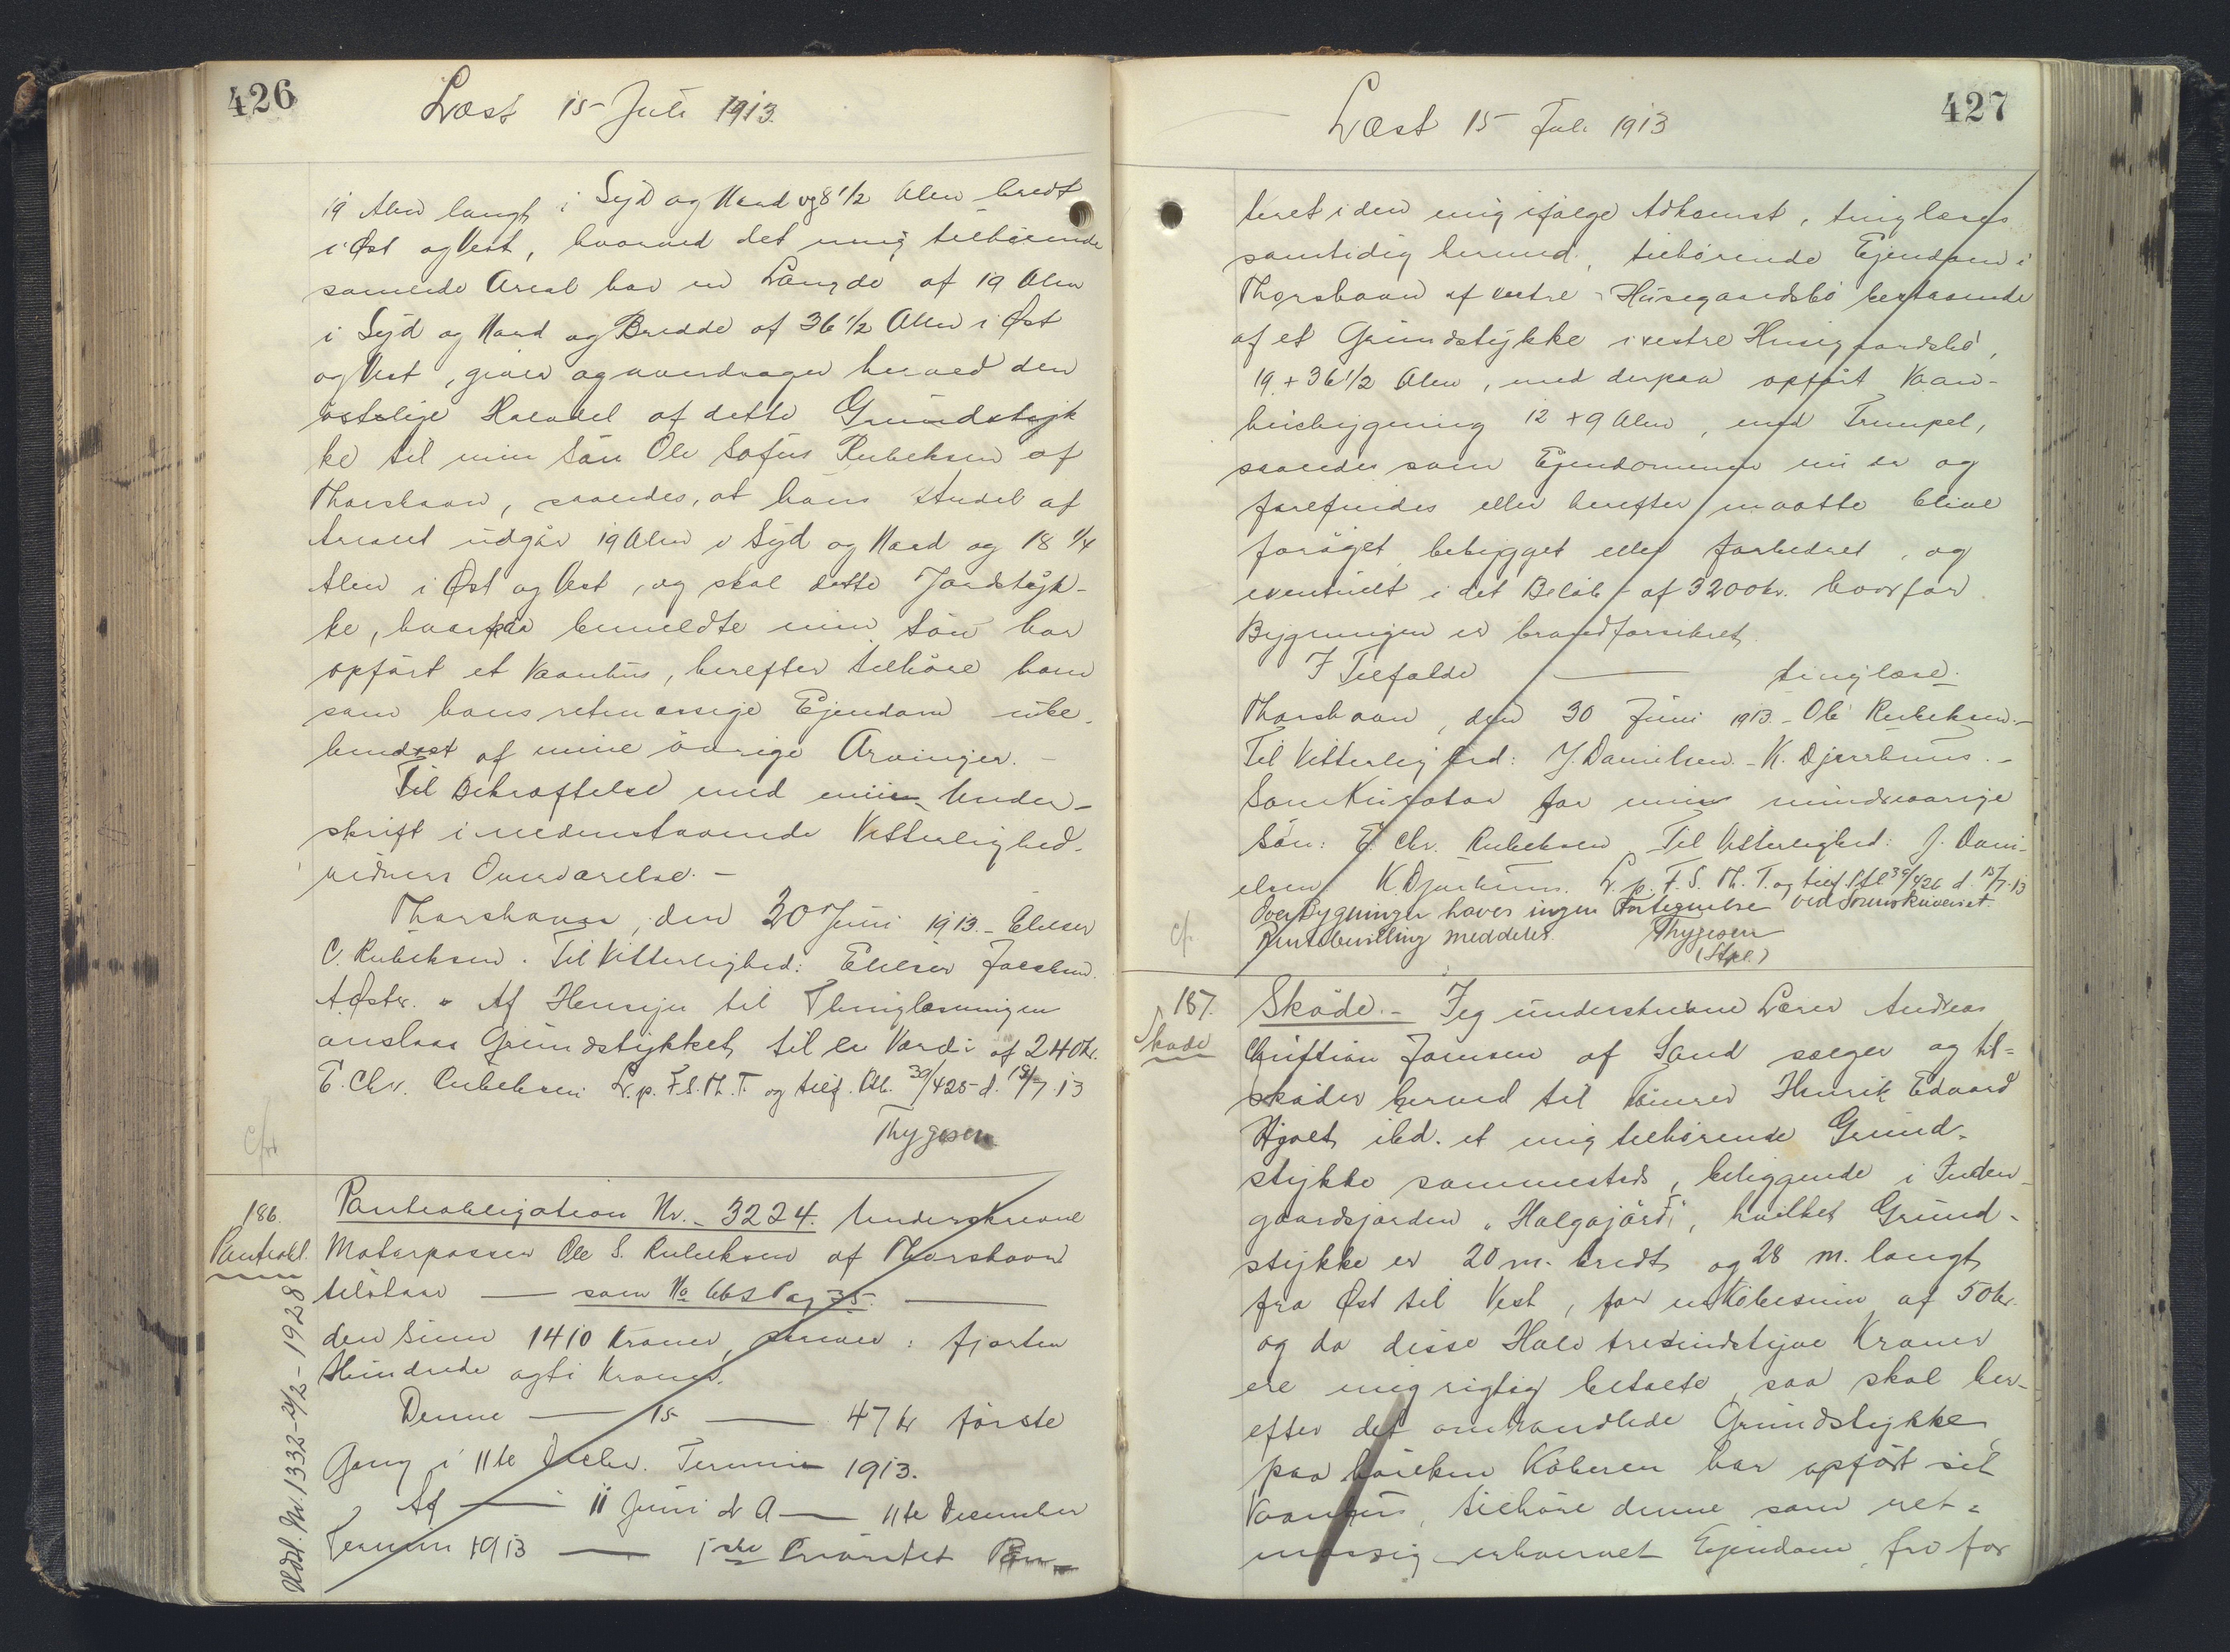 426
Læst 15 Juli 1913.
19 Alen langt i Syd og Nord og 8 1/2 Alen bredt
i Øst og Vest, hvorved det mig tilhørende
samlede Areal har en Længde af 19 Alen
i Syd og Nord og Bredde af 36 1/2 Alen i Øst
og Vest, giver og overdrager herved den
östlige Halvdel af dette Grundstyk
ke til min Sön Ole Sofus Rubeksen af
Thorshavn, saaledes, at hans Andel af
Arealet udgör 19 Alen i Syd og Nord og 18 1/4
Alen i Øst og Vest, og skal dette Jordstyk-
ke, hvorpaa bemeldte min Sön har
opfört et Vaanhus, herefter tilhöre ham
som hans retmæssige Ejendom ube-
hindret af mine övrige Arvinger. -
Til Bekræftelse med min Under-
skrift i nedenstaaende Vitterlighed-
vidners Overværelse. -
Thorshavn, den 30 Juni 1913. - Elieser
C. Rubeksen. Til Vitterlighed: Elieser Jacobsen.
A. Øster. Af Hensyn til Thinglæsningen
anslaas Grundstykket til en Værdi af 240 Kr.
E. Chr. Rubeksen L. p. F. S. Th. T. og tilf. Ptb. 39/425 d. 15/7 13
Thygesen
cfr
186.
Pantobl.
Pantobligation Nr. - 3224. Underskrevne
Motorpasser Ole S. Rubeksen af Thorshavn
tilstaar — som No 661 Pag 35. —
den Sum 1410 Kroner, skriver: fjorten
Hundrede og ti Kroner.
Denne — 15 — 47 Kr första
Gang i 11te Decbr. Termin 1913.
Af — 11 Juni d A — 11te December
Termin 1913 — 1ste Prioritet Pan-
Udsl. Nr. 1332 - 21/2 - 1928
427
Læst 15 Juli 1913
teret i den mig ifølge Adkomst, tinglæses
samtidig hermed, tilhörende Ejendom i
Thorshavn af vestre Húsegaardsbö bestaaende
af et Grundstykke i vestre Husegaardsbö,
19 + 36 1/2 Alen, med derpaa opfört Vaan-
húsbygning 12 + 9 Alen, med Trempel,
saaledes som Ejendommen nu er og
forefindes eller herefter maatte blive
foröget, bebygget eller forbedret, og
eventuelt i det Belöb af 3200 Kr. hvorfor
Bygningen er brandforsikret.
I Tilfælde — tinglæse.
Thorshavn, den 30 Juni 1913. - Ole Rubeksen. -
Til Vitterlighed: J. Danielsen. - K. Djurhuus. -
Som Kurator for min mindreaarige
Sön: E. Chr. Rubeksen. Til Vitterlighed: J. Dani-
elsen K. Djurhuus. L. p. F. S. Th. T. og tilf. Ptb 39/426 d. 15/7 13
Over Bygninger haves ingen Fortegnelse ved Sorenskriveriet.
Pantebevilling meddeles. Thygesen
(Stpl.)
cfr
187.
Skøde
Sköde. - Jeg understrevne Lærer Andreas
Christian Joensen af Sand sælger og til-
sköder herved til Tömrer Henrik Edvard
Hjalt ibd. et mig tilhörende Grund-
stykke sammesteds, beliggende i Inden-
gaardsjorden "Halgajördi", hvilket Grund-
stykke er 20 m. bredt og 28 m. langt
fra Øst til Vest, for en Köbesum af 50 Kr.
og da disse Halvtresindstyve Kroner
ere mig rigtig betalte, saa skal her-
efter det omhandlede Grundstykke,
paa hvilken Köberen har opfört sit
Vaanhus, tilhöre denne som ret-
mæssig erhvervet Ejendom, fri for